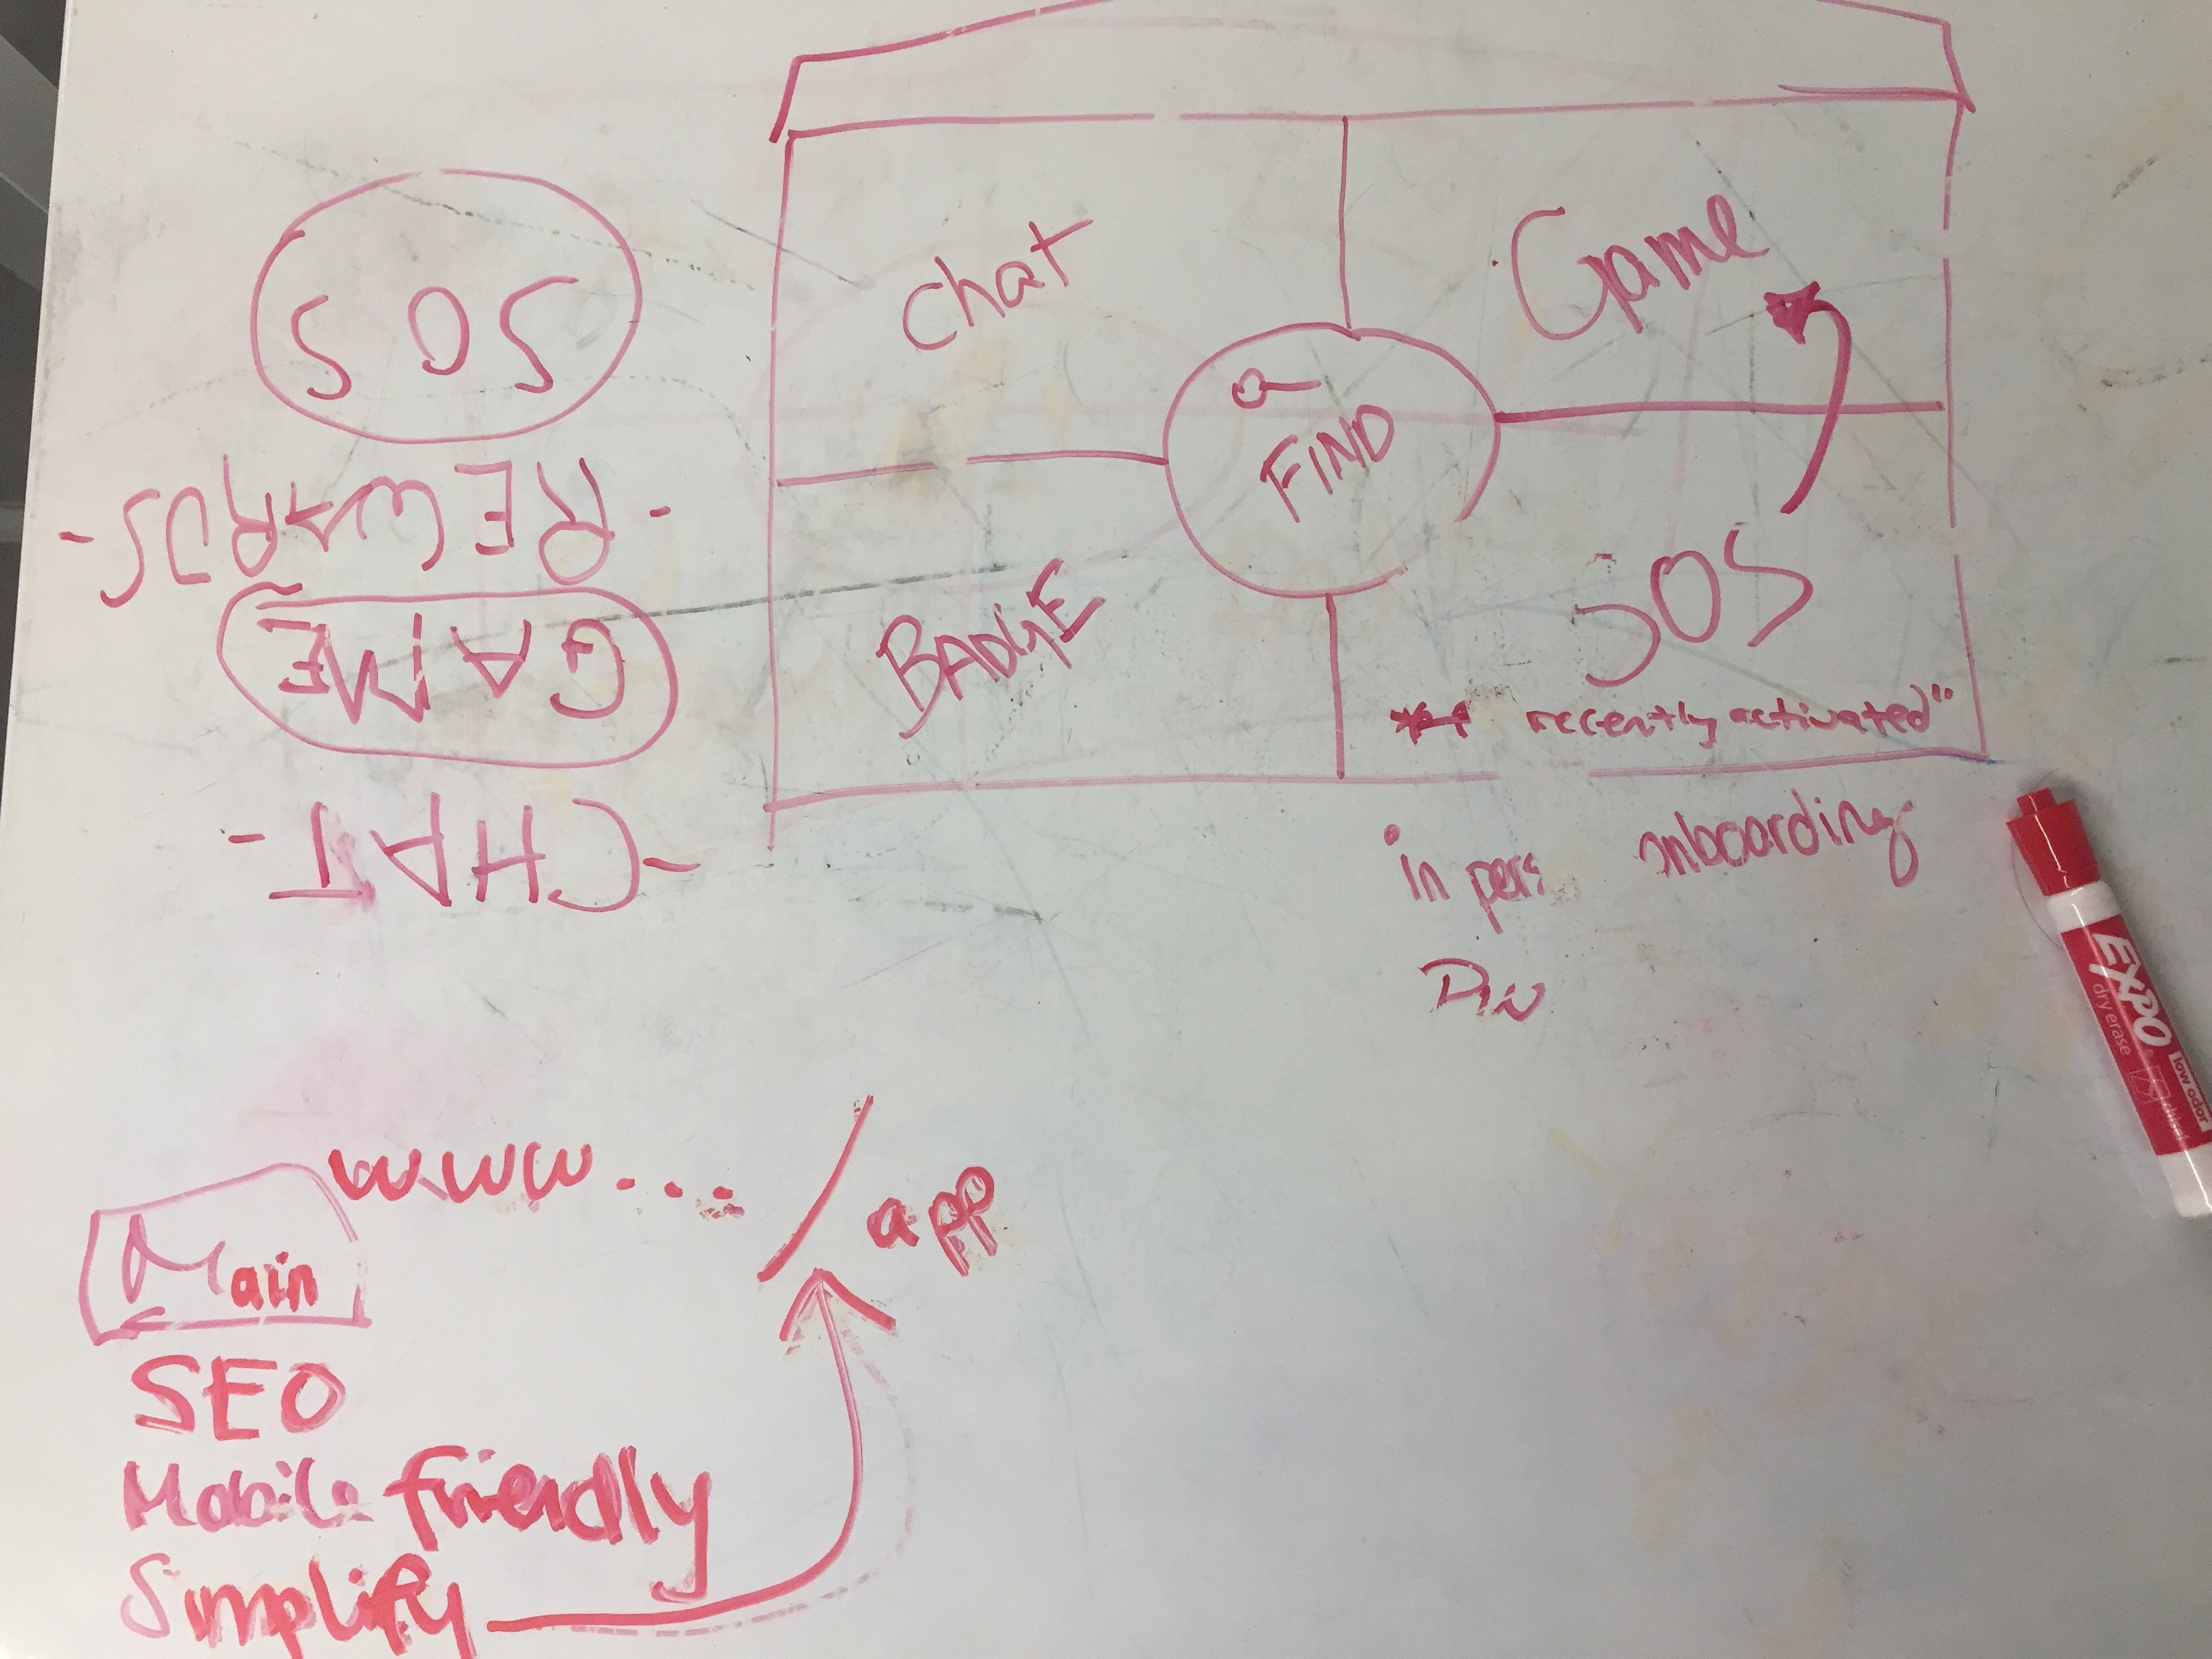 Chat
Game
FIND
BADGE
SOS
recently activated"
in pers onboarding
- CHAT -
GAME
- REWARDS -
SOS
www... / app
Main
SEO
Mobile friendly
Simplify
EXPO
dry erase
low odor